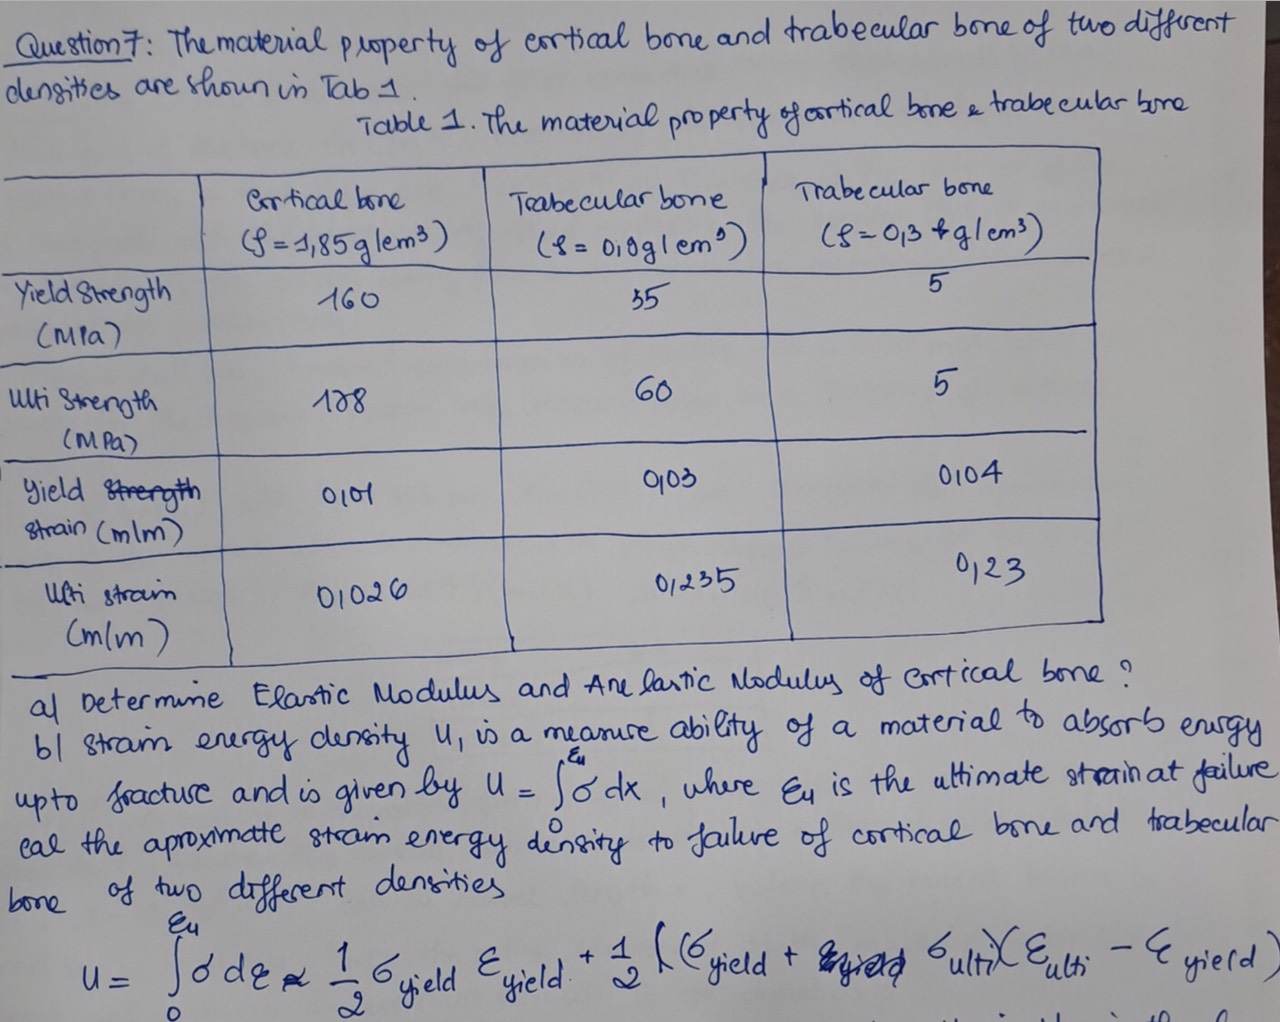 Question 7: The material property of cortical bone and trabecular bone of two different
densities are shown in Tab 1.
Table 1. The material property of cortical bone & trabecular bone
Cortical bone
(ρ = 1,85g/cm³)
Trabecular bone
(ρ = 0,9g/cm³)
Trabecular bone
(ρ = 0,3 g/cm³)
Yield Strength
(MPa)
160
35
5
Ulti Strength
(MPa)
128
60
5
Yield Strength
strain (m/m)
0,01
0,03
0,04
Ulti strain
(m/m)
0,026
0,235
0,23
a) Determine Elastic Modulus and Anelastic Modulus of cortical bone ?
b) strain energy density U, is a measure ability of a material to absorb energy
upto fracture and is given by U = ∫₀^εu σ dx, where εu is the ultimate strain at failure
cal the aproximate strain energy density to failure of cortical bone and trabecular
bone of two different densities
U = ∫₀^εu σ dε ≈ 1/2 σyield εyield + 1/2 (σyield + σulti)(εulti - εyield)